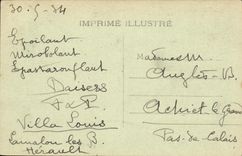 30-5-34
IMPRIMÉ ILLUSTRÉ
Epoilant
Mirobolant
Epastarouflant
Baisers
Villa Louis
Lamalou les B.
Hérault
Anglès-B.
Achiet le Grand
Pas-de-Calais